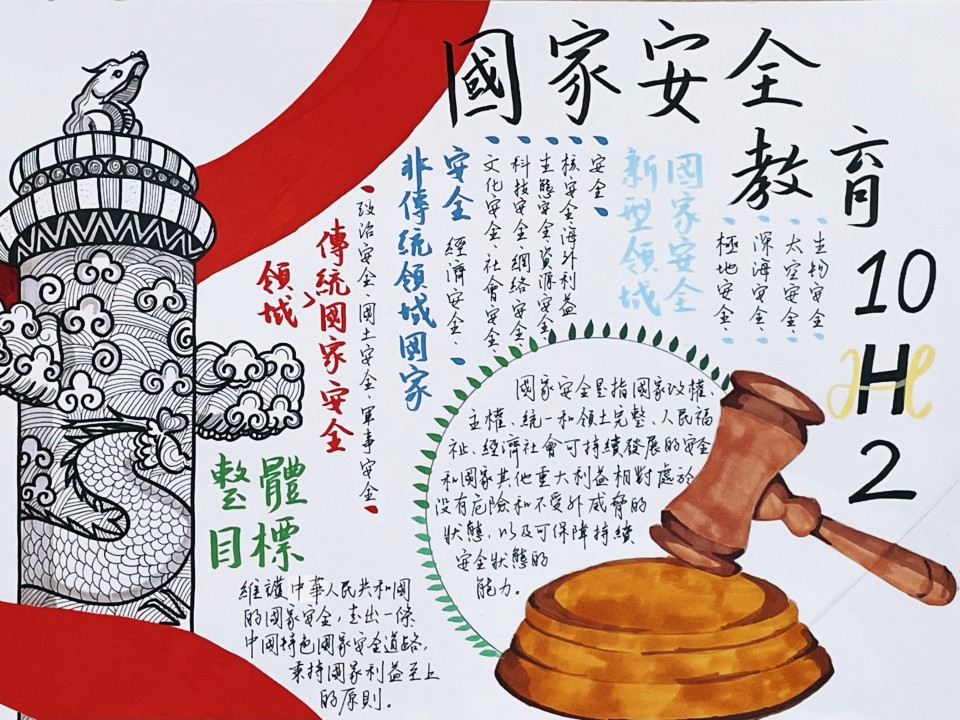 國家安全
教育
10
H
2
國家安全
新型領域
生物安全
太空安全、
深海安全、
極地安全、
非傳統領域國家
安全
經濟安全、
文化安全、社會安全、
科技安全、網絡安全、
生態安全、資源安全、
核安全、海外利益
安全
傳統國家安全
領域
政治安全、國土安全、軍事安全
國家安全是指國家政權、
主權、統一和領土完整、人民福
祉、經濟社會可持續發展的安全
和國家其他重大利益相對處於
沒有危險和不受外威脅的
狀態，以及可保障持續
安全狀態的
能力。
整體
目標
維護中華人民共和國
的國家安全，走出一條
中國特色國家安全道路，
秉持國家利益至上
的原則。